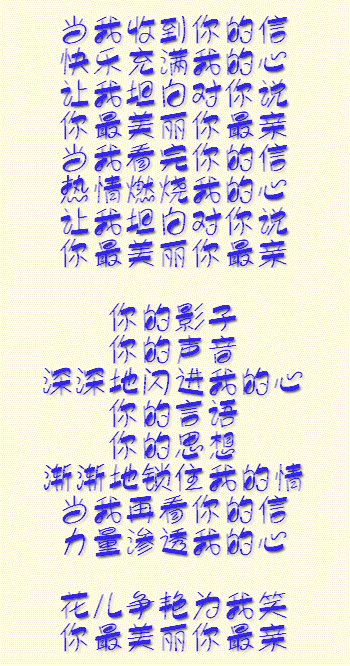 当我收到你的信
快乐充满我的心
让我坦白对你说
你最美丽你最亲
当我看完你的信
热情燃烧我的心
让我坦白对你说
你最美丽你最亲
你的影子
你的声音
深深地闪进我的心
你的言语
你的思想
渐渐地锁住我的情
当我再看你的信
力量渗透我的心
花儿争艳为我笑
你最美丽你最亲